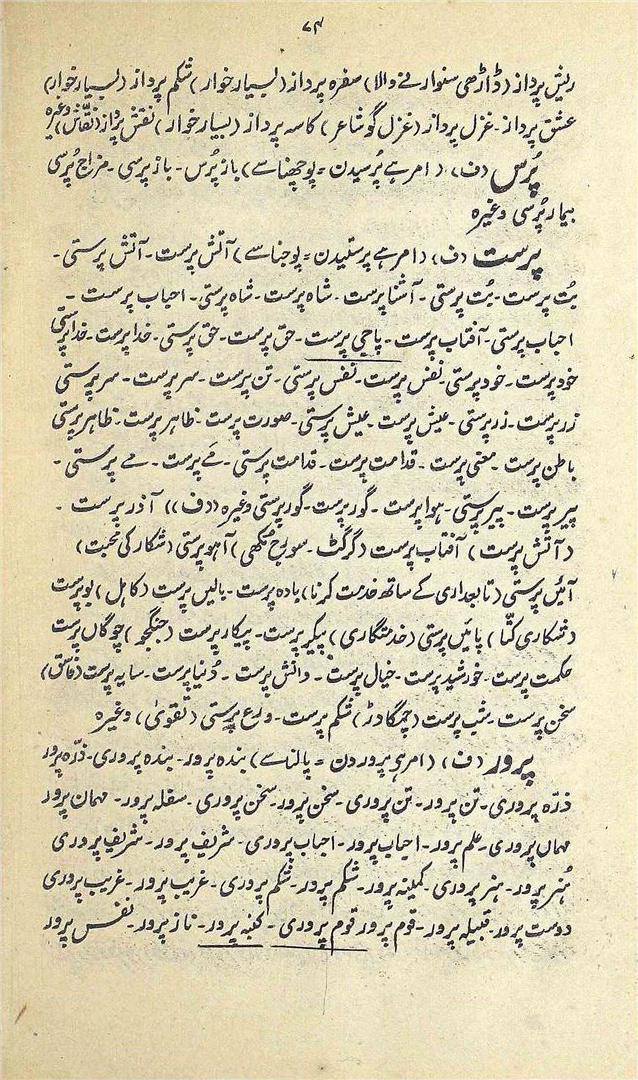 ۷۴
ریش پرداز (ڈاڑھی سنوارنے والا) سفرہ پرداز (بسیار خوار) شکم پرداز (بسیار خوار)
عشق پرداز۔ غزل پرداز (غزل گو شاعر) کاسہ پرداز (بسیار خوار) نقش پرداز (نقاش) وغیرہ
پُرس (ف) (امر ہے پُرسیدن = پوچھنا سے) باز پُرس۔ باز پرسی۔ مزاج پُرسی
بیمار پُرسی وغیرہ
پرست (ف) (امر ہے پرستیدن = پوجنا سے) آتش پرست۔ آتش پرستی۔
بُت پرست۔ بُت پرستی۔ آشنا پرست۔ شاہ پرست۔ شاہ پرستی۔ احباب پرست۔
احباب پرستی۔ آفتاب پرست۔ پاجی پرست۔ حق پرست۔ حق پرستی۔ خدا پرست۔ خدا پرستی
خود پرست۔ خود پرستی۔ نفس پرست۔ نفس پرستی۔ تن پرست۔ سر پرست۔ سر پرستی
زر پرست۔ زر پرستی۔ عیش پرست۔ عیش پرستی۔ صورت پرست۔ ظاہر پرست۔ ظاہر پرستی
باطن پرست۔ معنی پرست۔ قدامت پرست۔ قدامت پرستی۔ مے پرست۔ مے پرستی۔
پیر پرست۔ پیر پرستی۔ ہوا پرست۔ گور پرست۔ گور پرستی وغیرہ ((ف)) آذر پرست۔
(آتش پرست) آفتاب پرست (گرگٹ۔ سورج مکھی) آہو پرستی (شکار کی محبت)
آئیں پرستی (تابعداری کے ساتھ خدمت کرنا) بادہ پرست۔ بالیں پرست (کاہل) بو پرست
(شکاری کتّا) پائیں پرستی (خدمتگاری) پیکر پرست۔ پیکار پرست (جنگجو) چوگاں پرست
حکمت پرست۔ خورشید پرست۔ خیال پرست۔ دانش پرست۔ دُنیا پرست۔ سایہ پرست (فاسق)
سخن پرست۔ شب پرست (چمگادڑ) شکم پرست۔ ورع پرستی (تقویٰ) وغیرہ
پرور (ف) (امر ہی پروردن = پالنا سے) بندہ پرور۔ بندہ پروری۔ ذرّہ پرور
ذرّہ پروری۔ تن پرور۔ تن پروری۔ سخن پرور۔ سخن پروری۔ سفلہ پرور۔ مہمان پرور
مہمان پروری۔ علم پرور۔ احباب پرور۔ احباب پروری۔ شریف پرور۔ شریف پروری
ہُنر پرور۔ ہنر پروری۔ کمینہ پرور۔ شکم پرور۔ شکم پروری۔ غریب پرور۔ غریب پروری
دوست پرور۔ قبیلہ پرور۔ قوم پرور قوم پروری۔ کنبہ پرور۔ ناز پرور۔ نفس پرور